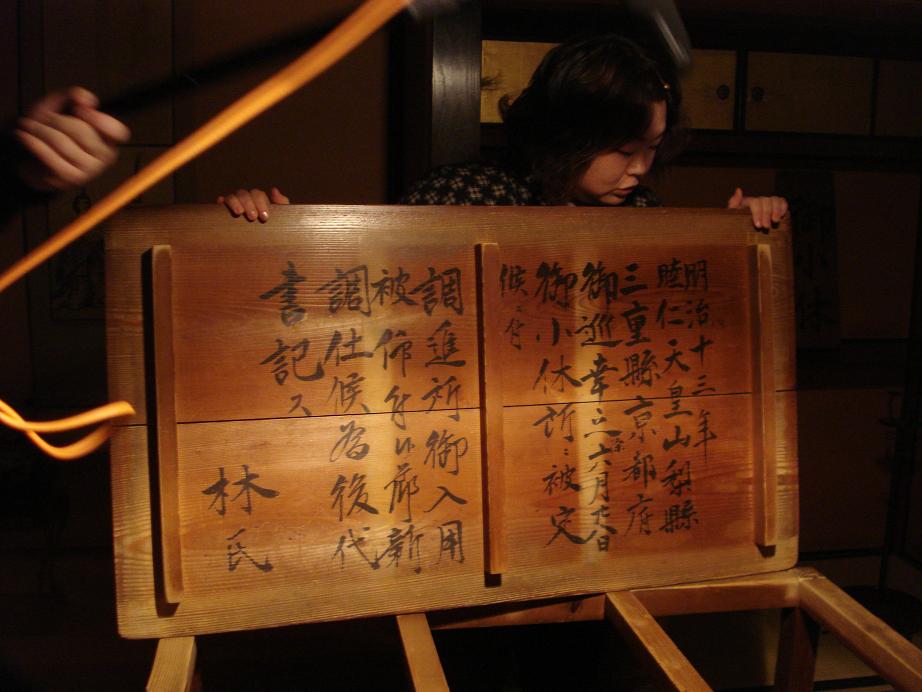 明治十三年
睦仁天皇山梨縣
三重縣京都府
御巡幸之際六月十八日
御小休所ニ被定
候ニ付
調進所御入用
被仰付候ニ付新
調仕候為後代
書記ス
林氏